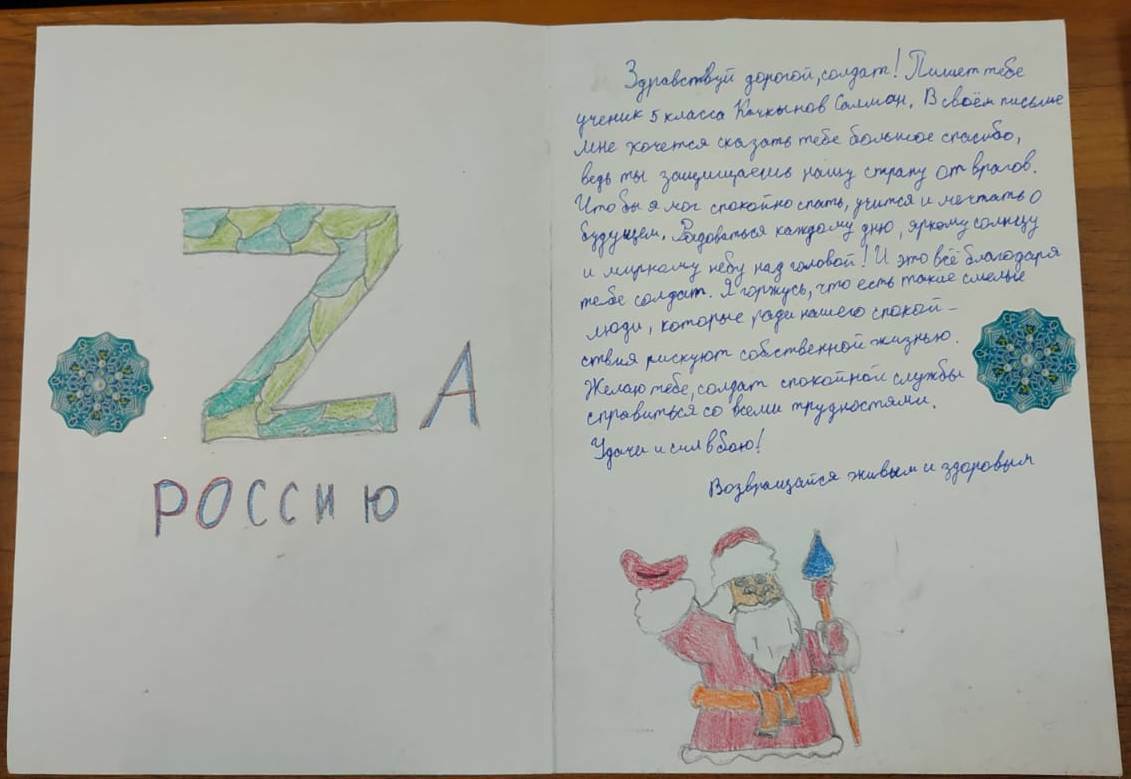 ZА
РОССИЮ
Здравствуй дорогой, солдат! Пишет тебе
ученик 5 класса Качкынов Салман. В своём письме
мне хочется сказать тебе большое спасибо,
ведь ты защищаешь нашу страну от врагов.
Что бы я мог спокойно спать, учится и мечтать о
будущем. Радоваться каждому дню, яркому солнцу
и мирному небу над головой! И это всё благодаря
тебе солдат. Я горжусь, что есть такие смелые
люди, которые ради нашего спокой-
ствия рискуют собственной жизнью.
Желаю тебе, солдат спокойной службы
справиться со всеми трудностями.
Удачи и сил в бою!
Возвращайся живым и здоровым